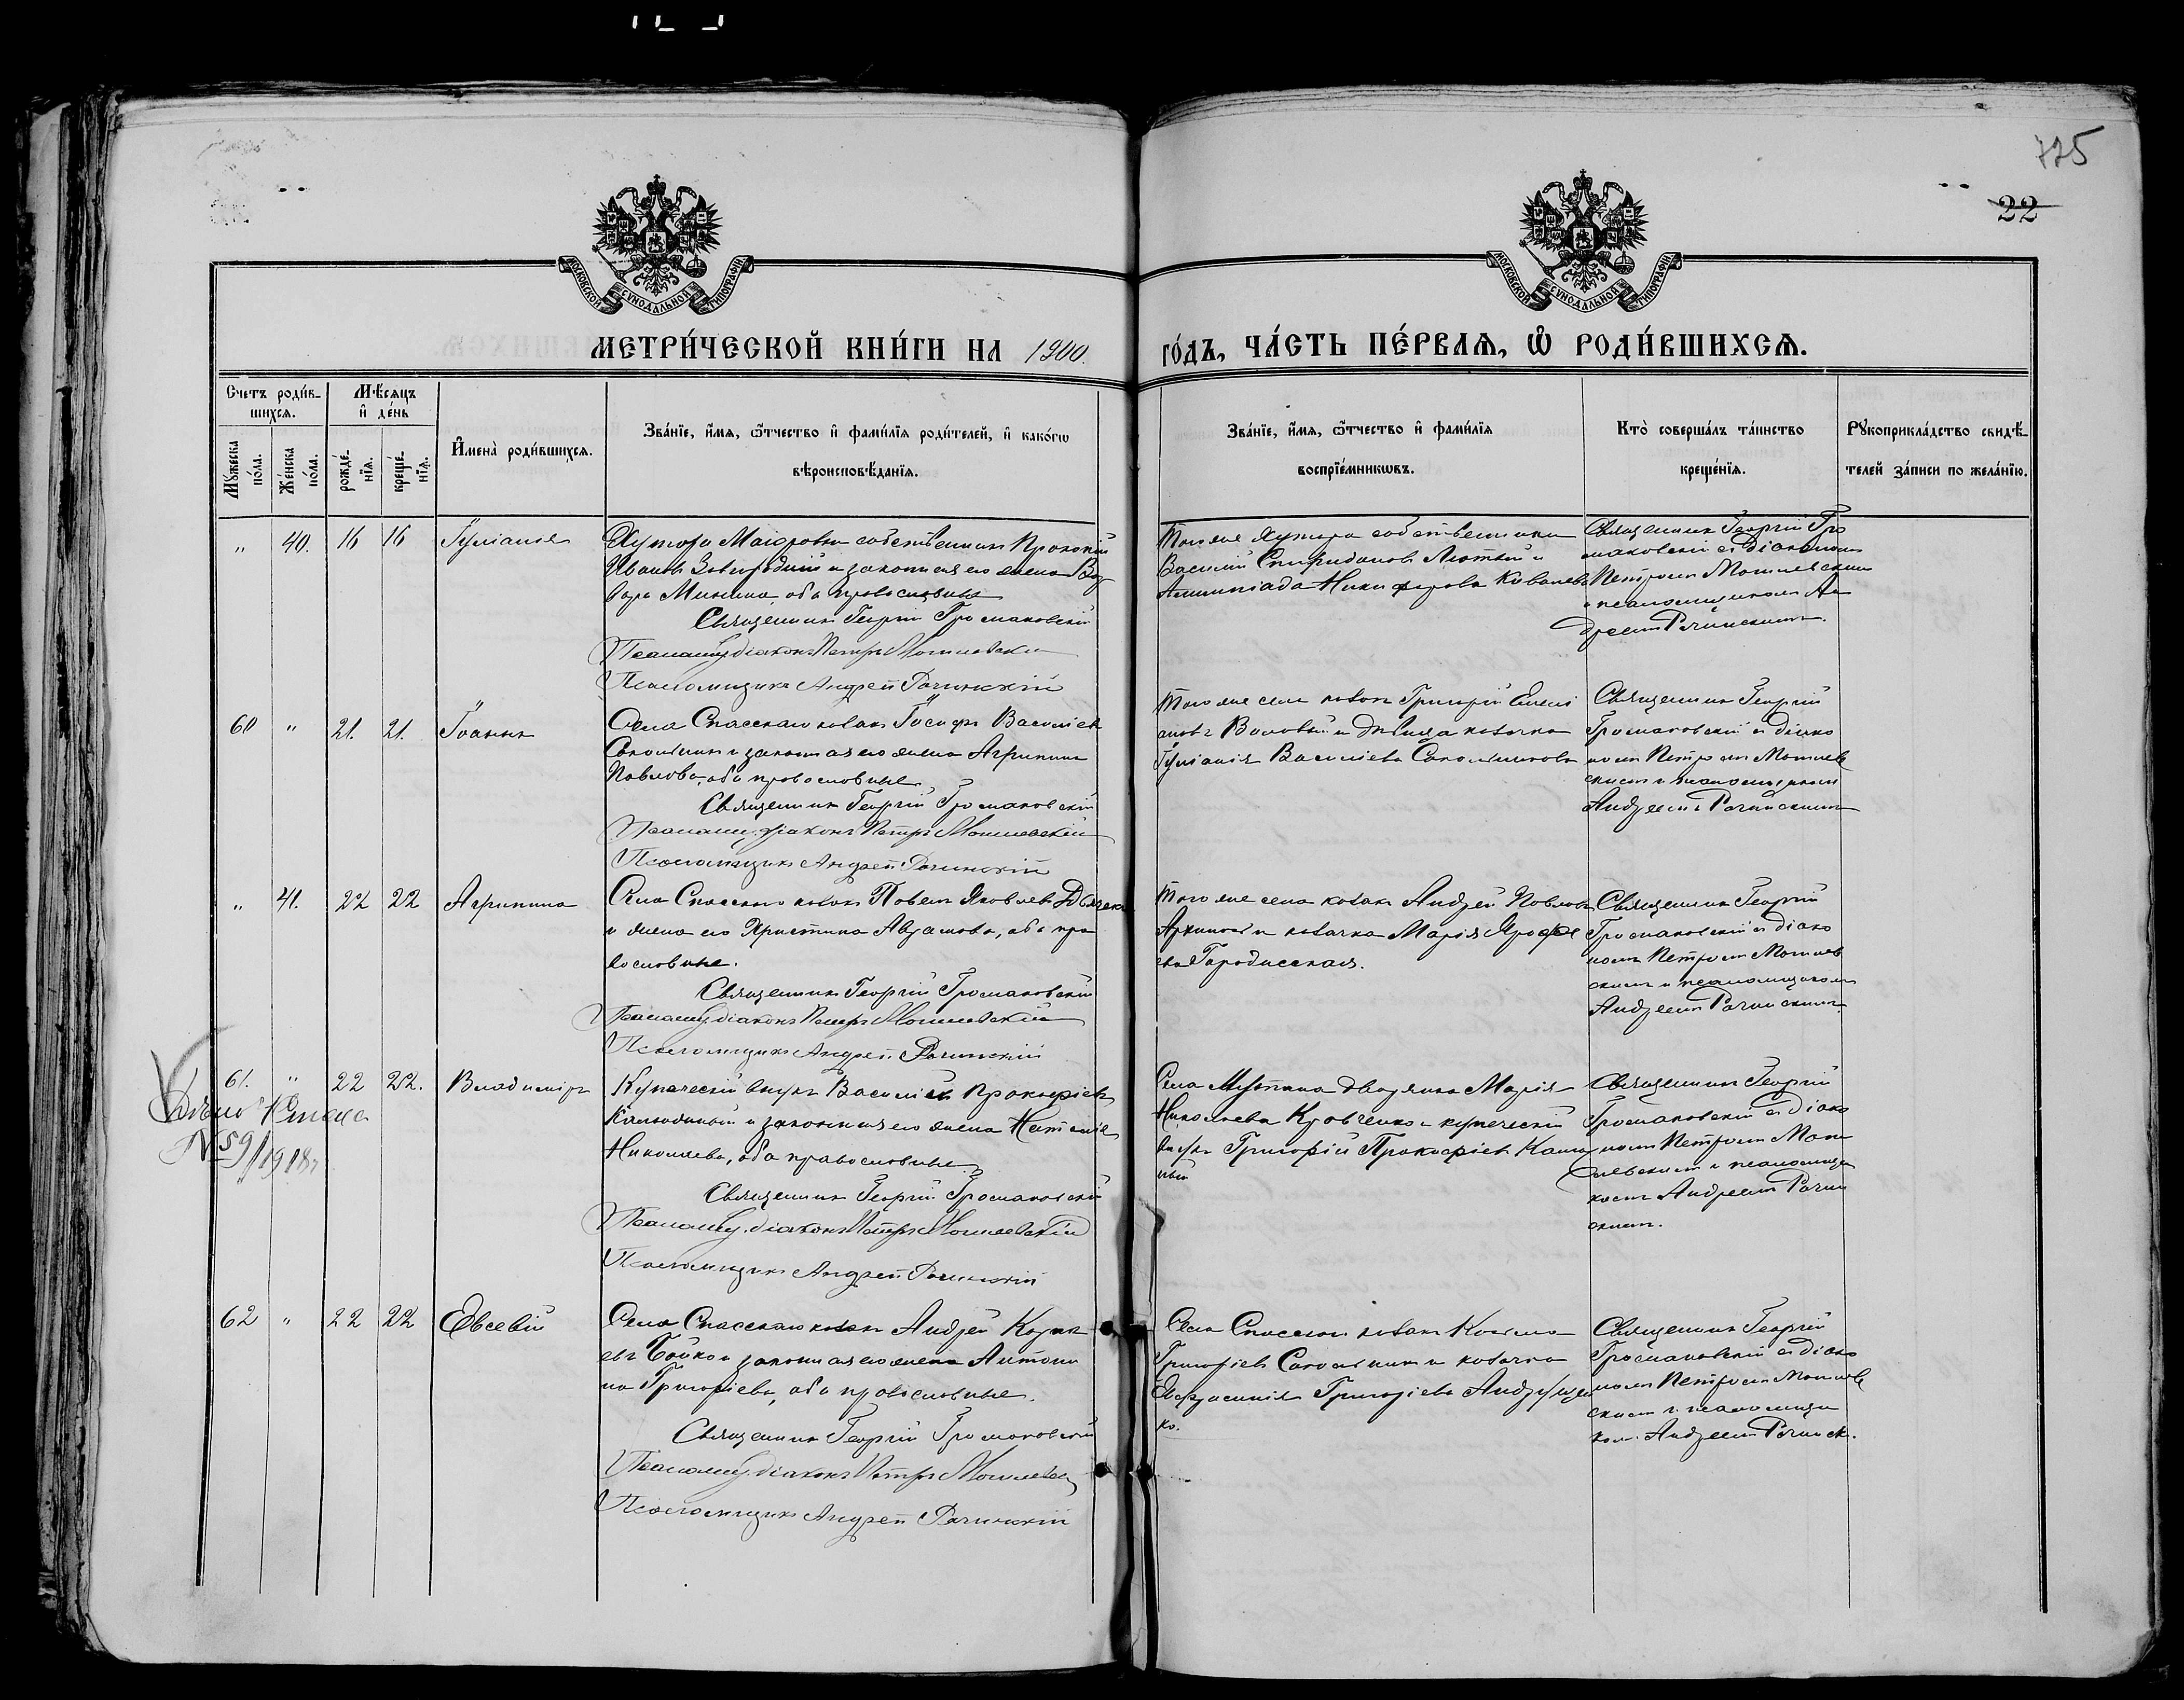 775
22
МОСКОВСКОЙ СѴНОДАЛЬНОЙ ТИПОГРАФІИ
МОСКОВСКОЙ СѴНОДАЛЬНОЙ ТИПОГРАФІИ
МЕТРИ́ЧЕСКОЙ КНИ́ГИ НА 1900. ГО́ДЪ, ЧА́СТЬ ПЕ́РВАѦ, Ѽ РОДИ́ВШИХСѦ.
Счетъ роди́в-
шихсѧ.
Му́жеска по́ла.
Же́нска по́ла.
Мѣ́сѧцъ
и҆ де́нь
рожде́-
нїѧ.
креще́-
нїѧ.
И҆мена̀ роди́вшихсѧ.
Зва́нїе, и҆́мѧ, ѻ҆́тчество и҆ фами́лїѧ роди́телей, и҆ како́гѡ
вѣроисповѣ́данїѧ.
Зва́нїе, и҆́мѧ, ѻ҆́тчество и҆ фами́лїѧ
воспрїе́мникѡвъ.
Кто̀ соверша́лъ та́инство
креще́нїѧ.
Рꙋкоприкла́дство свидѣ́-
телей за́писи по жела́нїю.
„ 40. 16 16 Іуліанія
Хутора собственникъ Прокопій
Ивановъ и законная его жена
Минина, оба православные
Священникъ Георгій Громаковскій
діаконъ Петръ Могилевскій
Псаломщикъ Андрей Рачинскій
Того же хутора собственники
Василій Спиридоновъ Лютый и
Никифорова
Священникъ Георгій Гро
маковскій съ діакономъ
Петромъ Могилевскимъ
и псаломщикомъ Ан
дреемъ Рачинскимъ.
60 „ 21. 21. Іоаннъ
Села Спасскаго козакъ Іосифъ Васильевъ
Сокольникъ и законная его жена Агрипина
Павлова, оба православные
Священникъ Георгій Громаковскій
діаконъ Петръ Могилевскій
Псаломщикъ Андрей Рачинскій
Того же села козакъ Григорій Емели
ановъ и дѣвица козачка
Іуліанія Васильева Сокольникова
Священникъ Георгій
Громаковскій съ діако
номъ Петромъ Могилев
скимъ и псаломщикомъ
Андреемъ Рачинскимъ
„ 41. 22 22 Агрипина
Села Спасскаго козакъ Павелъ Яковлевъ
и жена его Христина Аврамова, оба пра
вославные.
Священникъ Георгій Громаковскій
діаконъ Петръ Могилевскій
Псаломщикъ Андрей Рачинскій
Того же села козакъ Андрей Павловъ
и козачка Марія Ярофе
ева Городисская.
Священникъ Георгій
Громаковскій съ діако
номъ Петромъ Могилев
скимъ и псаломщикомъ
Андреемъ Рачинскимъ.
61. „ 22 22. Владиміръ
№ 59/1918
Купеческій внукъ Василій Прокофіевъ
и законная его жена Наталія
Николаева, оба православные
Священникъ Георгій Громаковскій
діаконъ Петръ Могилевскій
Псаломщикъ Андрей Рачинскій
Села дворянка Марія
Николаева Кравченко и купеческій
внукъ Григорій Прокофіевъ
Священникъ Георгій
Громаковскій съ діако
номъ Петромъ Моги
левскимъ и псаломщи
комъ Андреемъ Рачин
скимъ.
62 „ 22 22 Евсевій
Села Спасскаго козакъ Андрей
евъ Бойко и законная его жена Антони
на Григоріева, оба православные.
Священникъ Георгій Громаковскій
діаконъ Петръ Могилевскій
Псаломщикъ Андрей Рачинскій
Села Спасскаго козакъ Косьма
Григоріевъ Сокольникъ и козачка
Евфросинія Григоріева Андрущен
ко.
Священникъ Георгій
Громаковскій съ діако
номъ Петромъ Могилев
скимъ и псаломщи
комъ Андреемъ Рачинск.